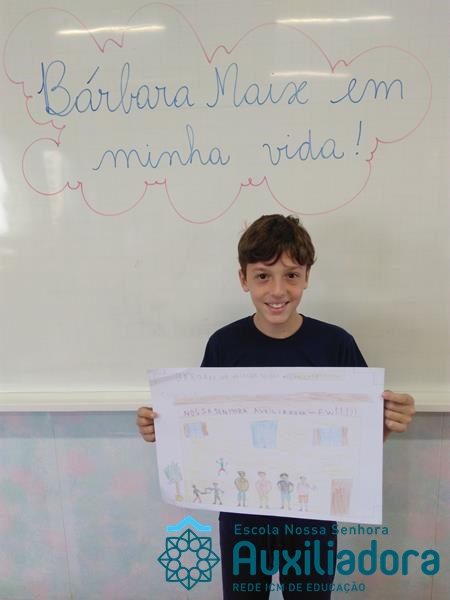 Bárbara Maix em
minha vida!
NOSSA SENHORA AUXILIADORA-FW!!!!!
Escola Nossa Senhora
Auxiliadora
REDE ICM DE EDUCAÇÃO